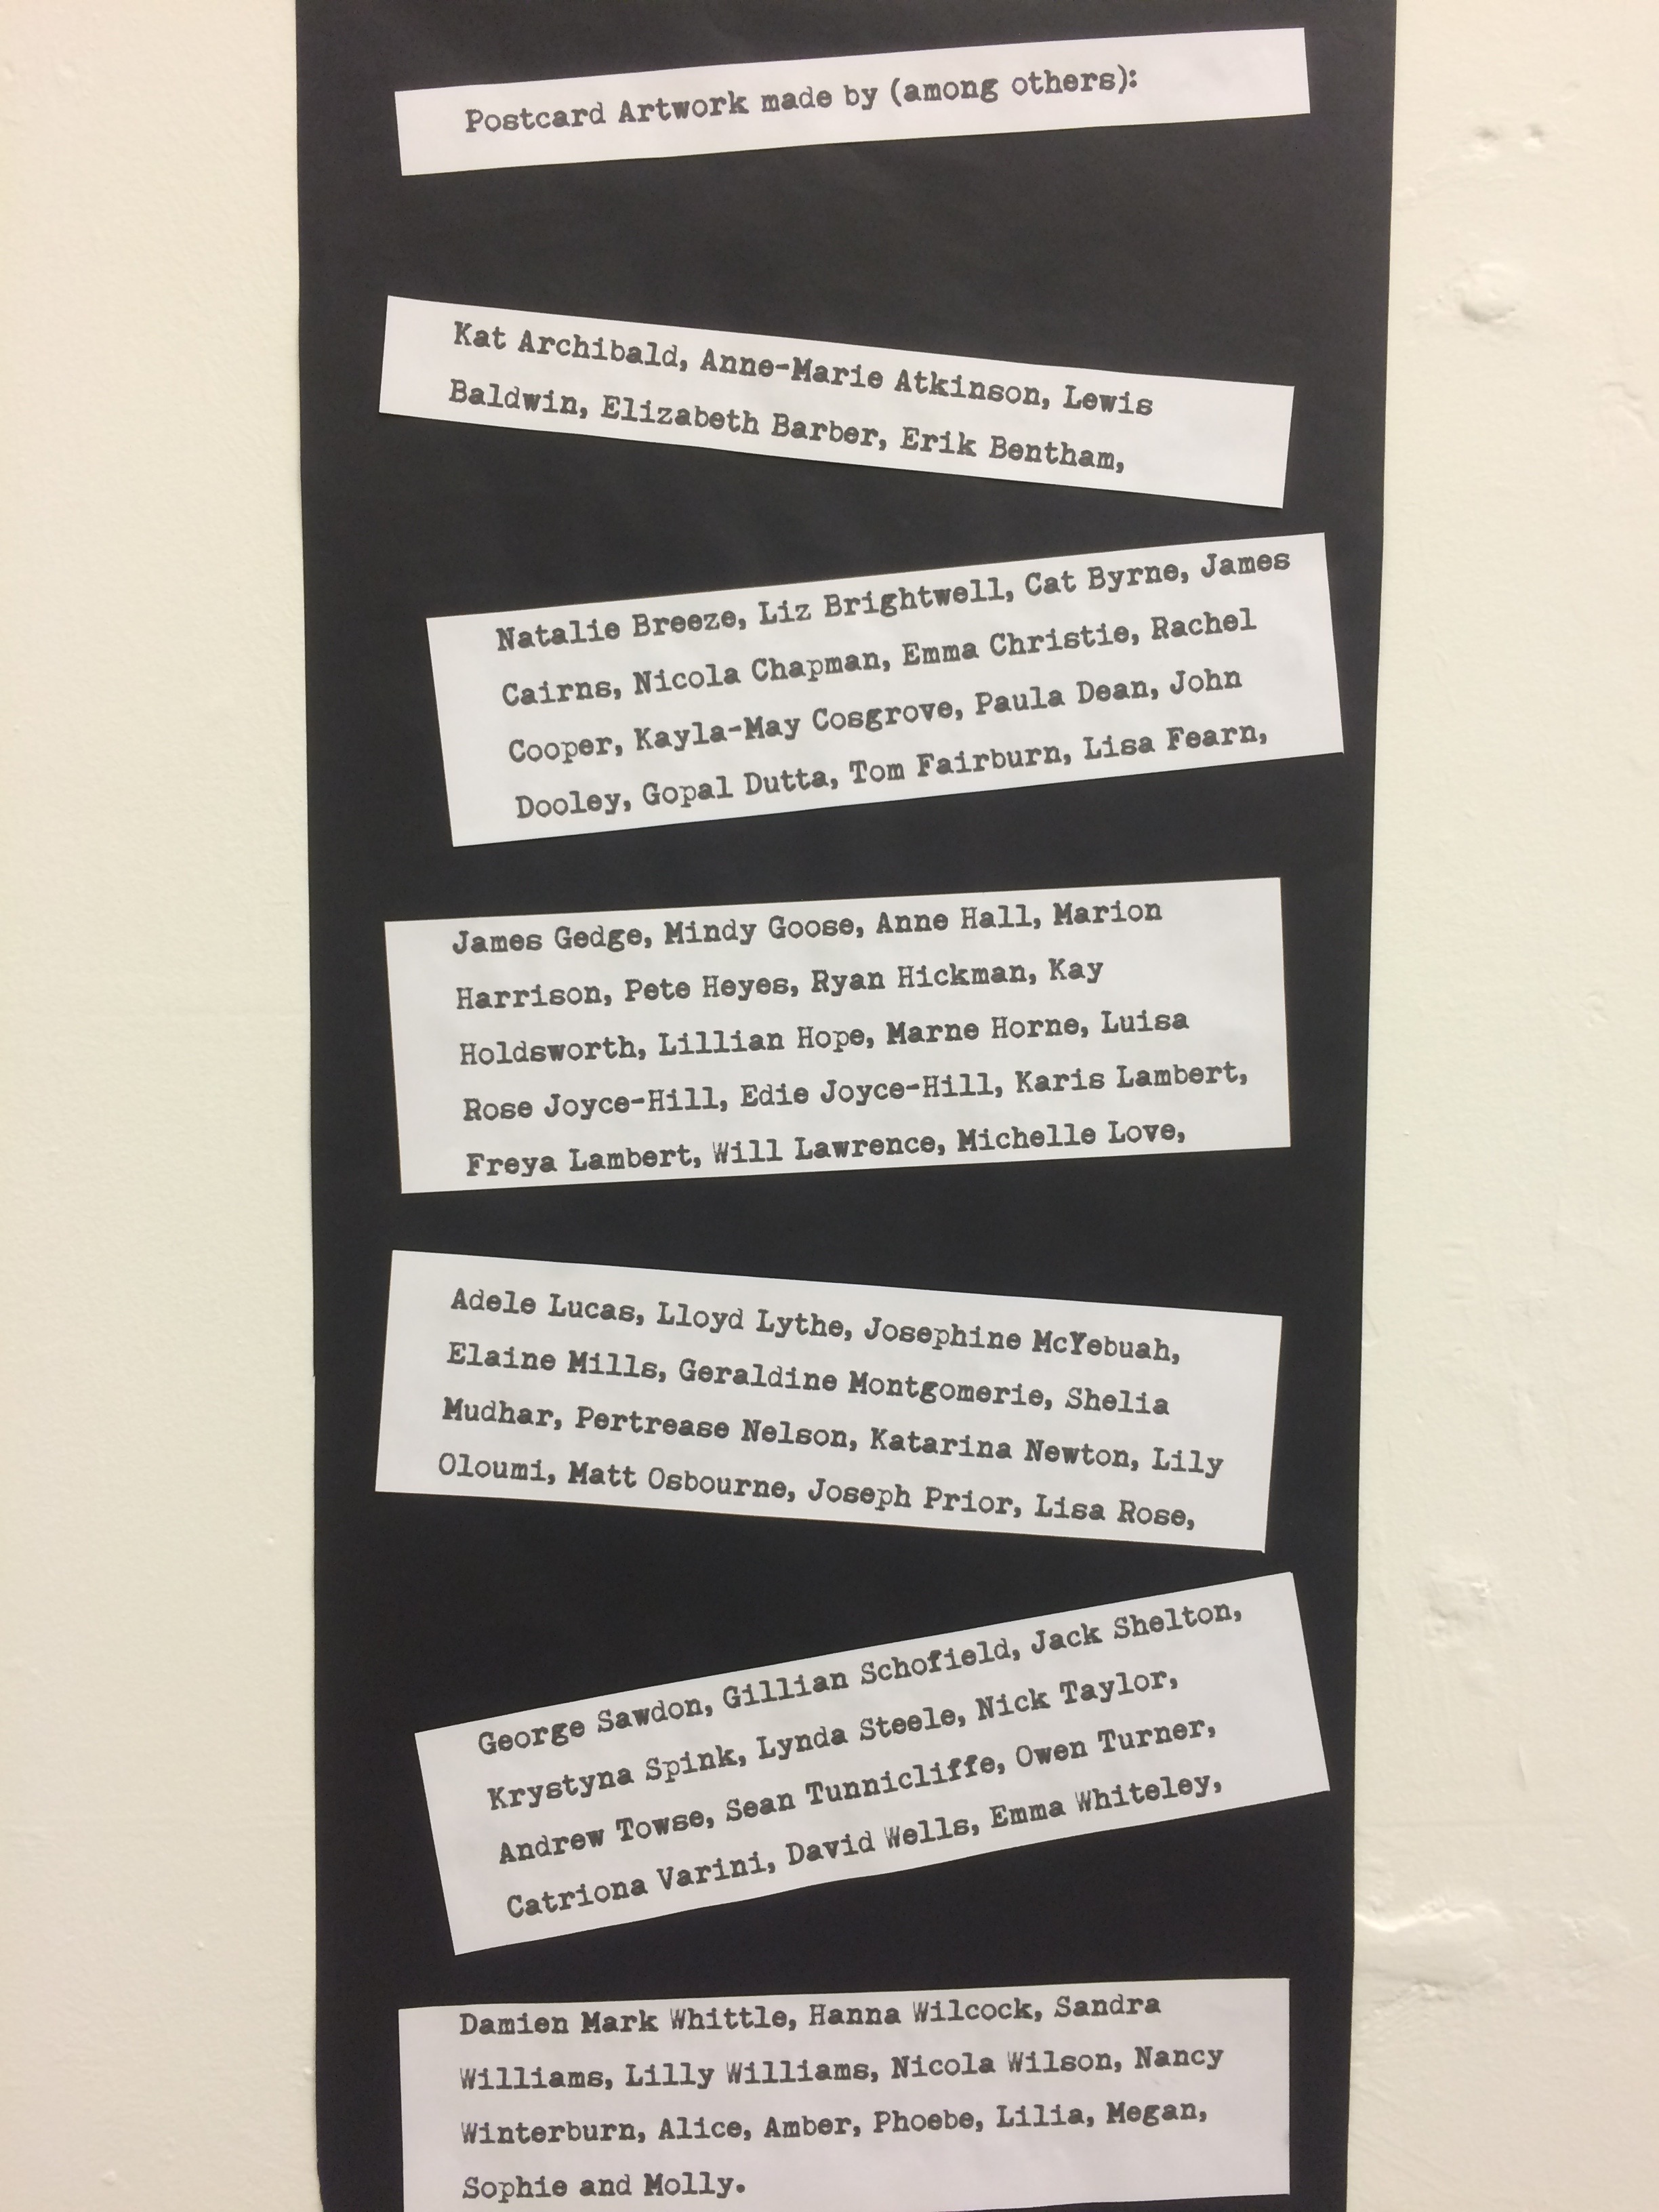 Postcard Artwork made by (among others):
Kat Archibald, Anne-Marie Atkinson, Lewis
Baldwin, Elizabeth Barber, Erik Bentham,
Natalie Breeze, Liz Brightwell, Cat Byrne, James
Cairns, Nicola Chapman, Emma Christie, Rachel
Cooper, Kayla-May Cosgrove, Paula Dean, John
Dooley, Gopal Dutta, Tom Fairburn, Lisa Fearn,
James Gedge, Mindy Goose, Anne Hall, Marion
Harrison, Pete Heyes, Ryan Hickman, Kay
Holdsworth, Lillian Hope, Marne Horne, Luisa
Rose Joyce-Hill, Edie Joyce-Hill, Karis Lambert,
Freya Lambert, Will Lawrence, Michelle Love,
Adele Lucas, Lloyd Lythe, Josephine McYebuah,
Elaine Mills, Geraldine Montgomerie, Shelia
Mudhar, Pertrease Nelson, Katarina Newton, Lily
Oloumi, Matt Osbourne, Joseph Prior, Lisa Rose,
George Sawdon, Gillian Schofield, Jack Shelton,
Krystyna Spink, Lynda Steele, Nick Taylor,
Andrew Towse, Sean Tunnicliffe, Owen Turner,
Catriona Varini, David Wells, Emma Whiteley,
Damien Mark Whittle, Hanna Wilcock, Sandra
Williams, Lilly Williams, Nicola Wilson, Nancy
Winterburn, Alice, Amber, Phoebe, Lilia, Megan,
Sophie and Molly.